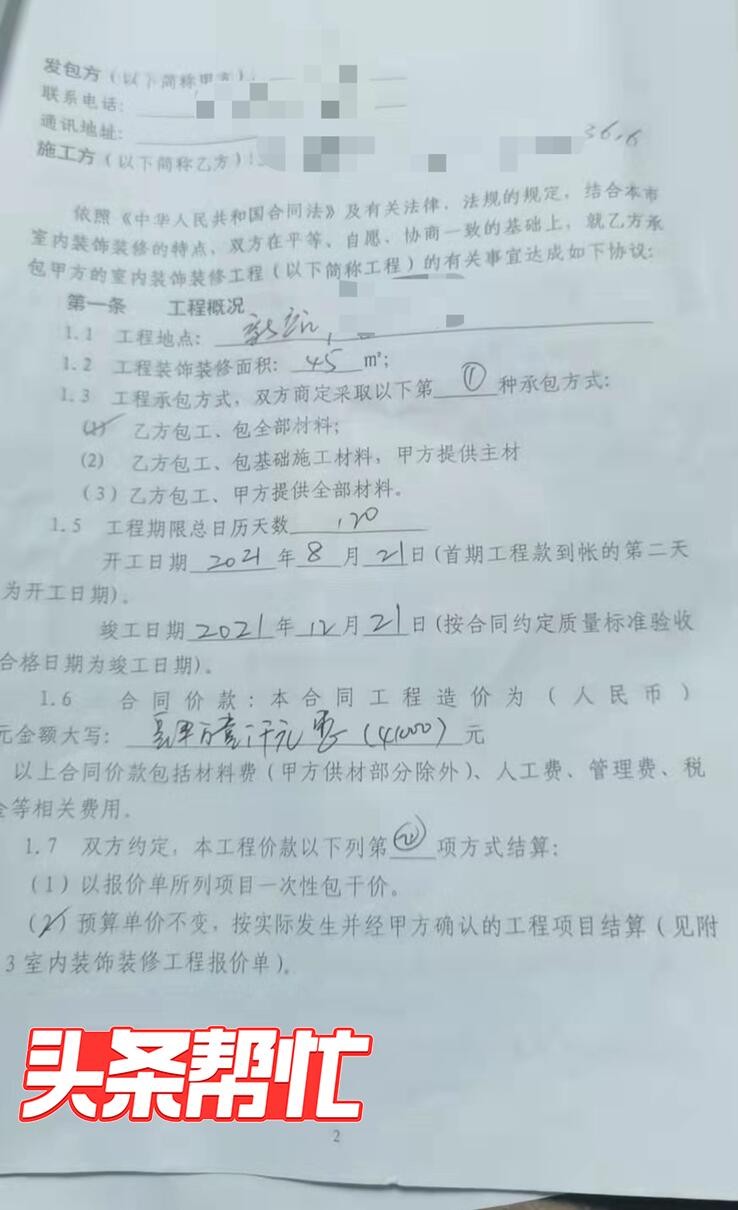 发包方（以下简称甲方）:
联系电话:
通讯地址:                    36.6
施工方（以下简称乙方）:
依照《中华人民共和国合同法》及有关法律，法规的规定，结合本市
室内装饰装修的特点，双方在平等、自愿、协商一致的基础上，就乙方承
包甲方的室内装饰装修工程（以下简称工程）的有关事宜达成如下协议:
第一条 工程概况
1.1 工程地点:
1.2 工程装饰装修面积: 45 m²;
1.3 工程承包方式，双方商定采取以下第 ① 种承包方式:
(1) 乙方包工、包全部材料;
(2) 乙方包工、包基础施工材料，甲方提供主材
(3) 乙方包工、甲方提供全部材料。
1.5 工程期限总日历天数 120
开工日期 2021 年 8 月 21 日(首期工程款到帐的第二天
为开工日期)。
竣工日期 2021 年 12 月 21 日(按合同约定质量标准验收
合格日期为竣工日期)。
1.6 合同价款:本合同工程造价为（人民币）
元金额大写: 肆万壹仟元零 (41000) 元
以上合同价款包括材料费（甲方供材部分除外）、人工费、管理费、税
金等相关费用。
1.7 双方约定，本工程价款以下列第 ② 项方式结算:
(1) 以报价单所列项目一次性包干价。
(2) 预算单价不变，按实际发生并经甲方确认的工程项目结算（见附
3 室内装饰装修工程报价单）。
头条帮忙
2